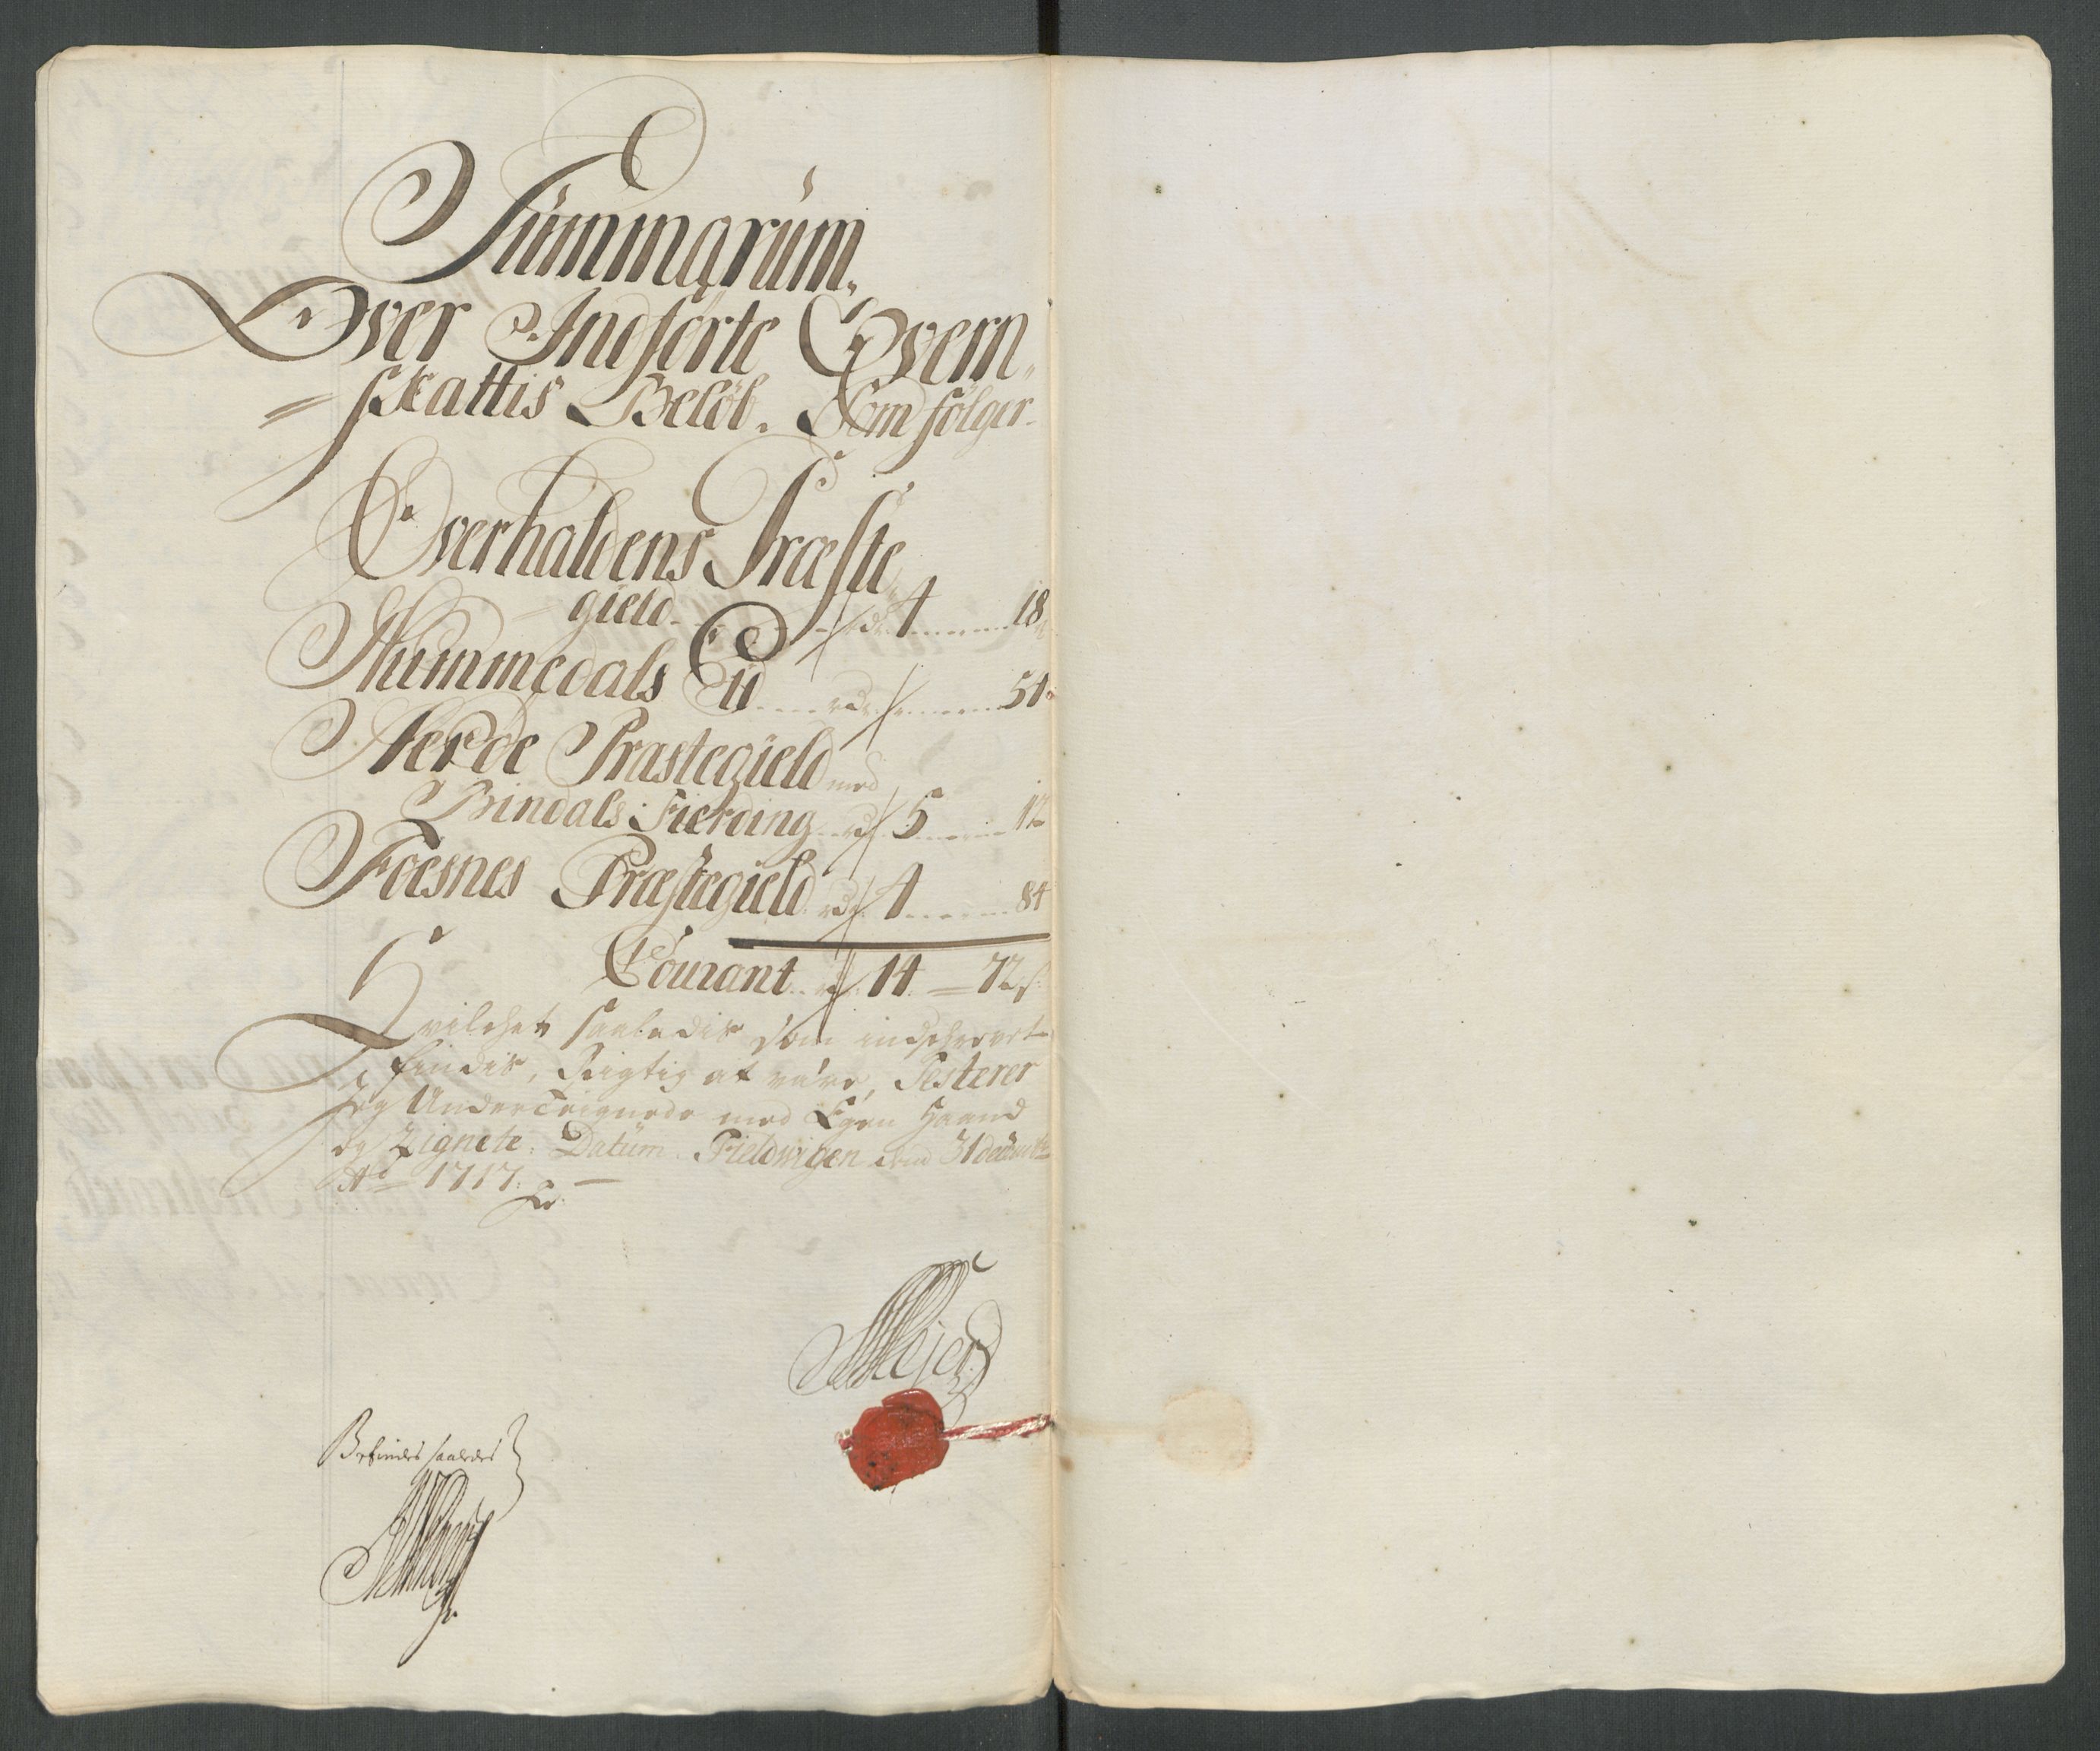 Summarum,
Over Indførte Qvern,
= skattis Beløb. Som følger.
Overhaldens Præste
gield rdr 4 18
Nummedals Eid rdr 54
Nerøe Præstegield med
Bindals Fierding rdr 5 12
Foesnes Præstegield rdr 4 84
Courant rdr 14 = 72 s
Hvilchet saaledis som indschrevet
findis, Rigtig at være, Testerer
Jeg Underteignede med Egen Haand
og Zignete. Datum Fieldwigen den 31 decembr
Ao 1717.
Befindes saaledes